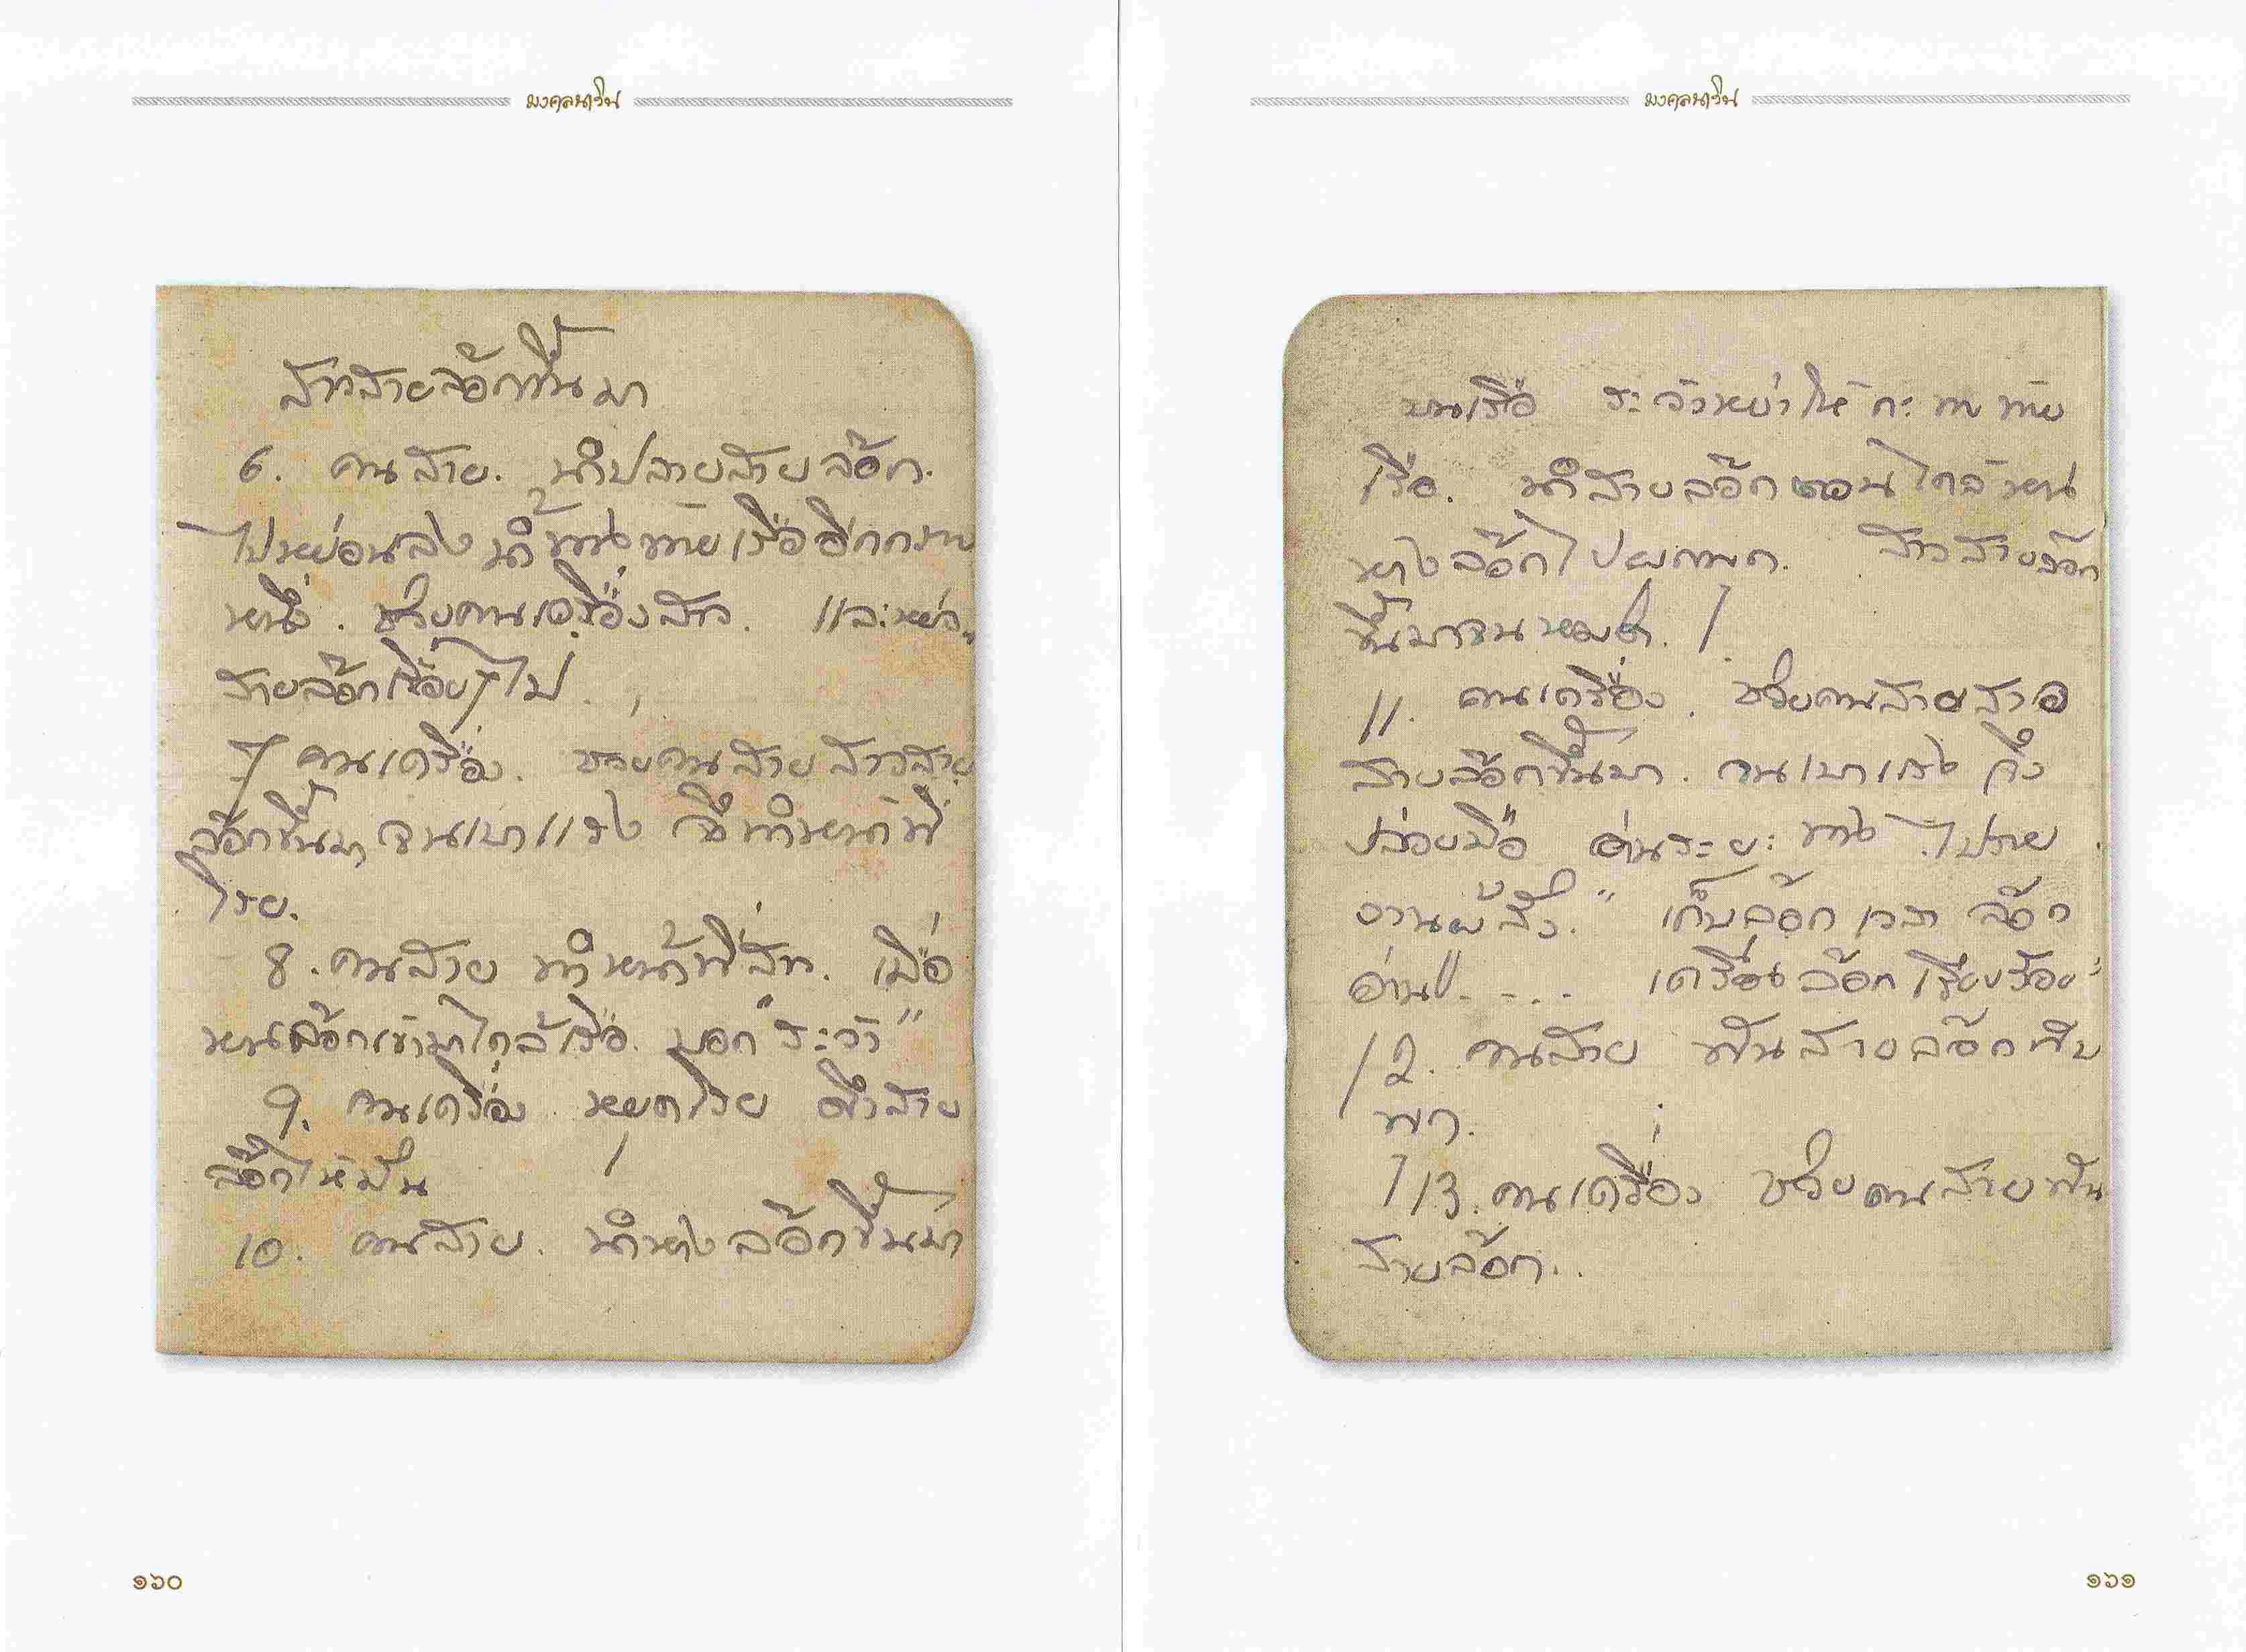 มงคลนาวิน
สาวสายล๊อกขึ้นมา
6. คนสาย. นำปลายสายล๊อก.
ไปหย่อนลงน้ำทางท้ายเรืออีกกราบ
หนึ่ง. ช่วยคนเครื่องสาว. และหย่อน
สายล๊อกเรื่อยๆไป.
7 คนเครื่อง. ช่วยคนสายสาวสาย
ล๊อกขึ้นมา จนเบาแรง จึงทำหน้าที่
โรย.
8. คนสาย ทำหน้าที่สาว. เมื่อ
หางล๊อกเข้ามาใกล้เรือ. บอก "ระวัง"
9. คนเครื่อง หยุดโรย ถือสาย
ล๊อกให้มั่น
10. คนสาย. นำหางล๊อกขึ้นมา
๑๖๐
มงคลนาวิน
บนเรือ ระวังหย่าให้กะทบท้าย
เรือ. นำสายล๊อกตอนใกล้หาง
หางล๊อกไป สาวสายล๊อก
ขึ้นมาจนหมด.
11. คนเครื่อง. ช่วยคนสายสาว
สายล๊อกขึ้นมา. จนเบาแรง จึง
ปล่อยมือ อ่านระยะทาง ไปราย
งานผู้สั่ง. "เก็บล๊อก เวลา ล๊อก
อ่าน".... เครื่องล๊อกเรียบร้อย"
12. คนสาย พันสายล๊อกกับ
13. คนเครื่อง ช่วยคนสายพัน
สายล๊อก..
๑๖๑